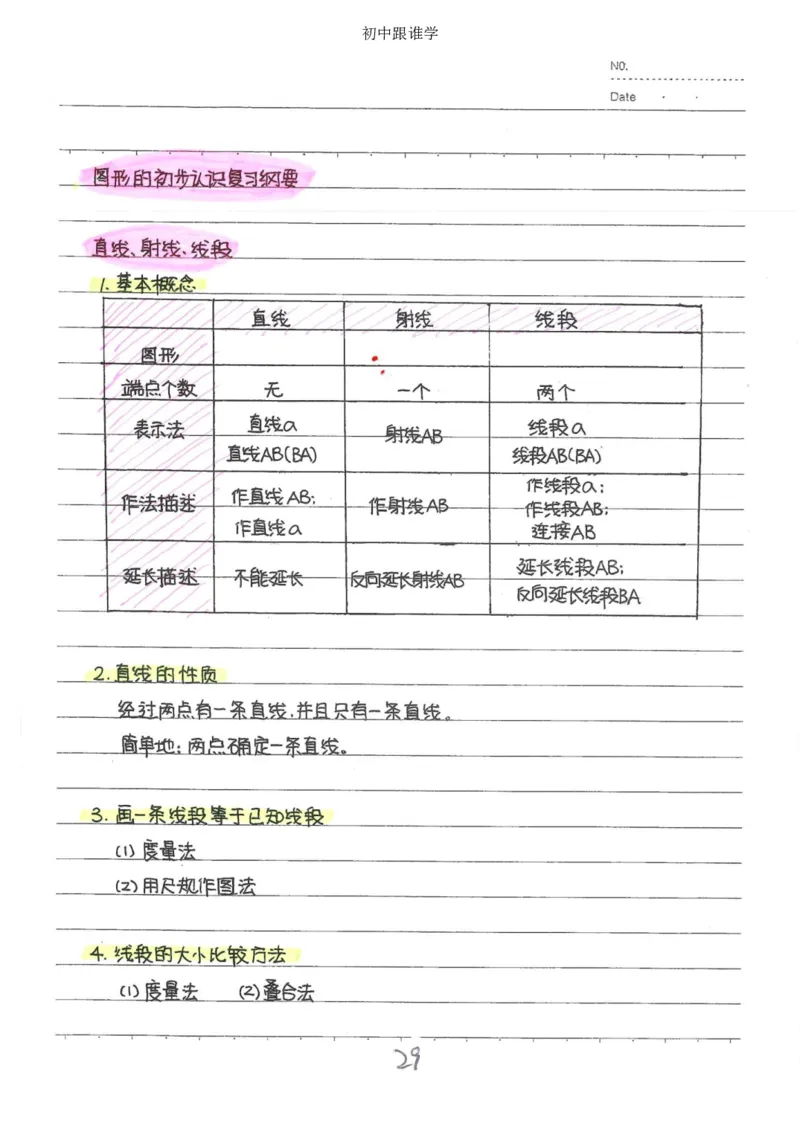 初中跟谁学
NO.
Date
图形的初步认识复习纲要
直线、射线、线段
1. 基本概念
直线 射线 线段
图形
端点个数 无 一个 两个
表示法 直线a 直线AB(BA) 射线AB 线段a 线段AB(BA)
作法描述 作直线AB; 作直线a 作射线AB 作线段a; 作线段AB; 连接AB
延长描述 不能延长 反向延长射线AB 延长线段AB; 反向延长线段BA
2. 直线的性质
经过两点有一条直线,并且只有一条直线。
简单地:两点确定一条直线。
3. 画一条线段等于已知线段
(1) 度量法
(2) 用尺规作图法
4. 线段的大小比较方法
(1) 度量法 (2) 叠合法
29